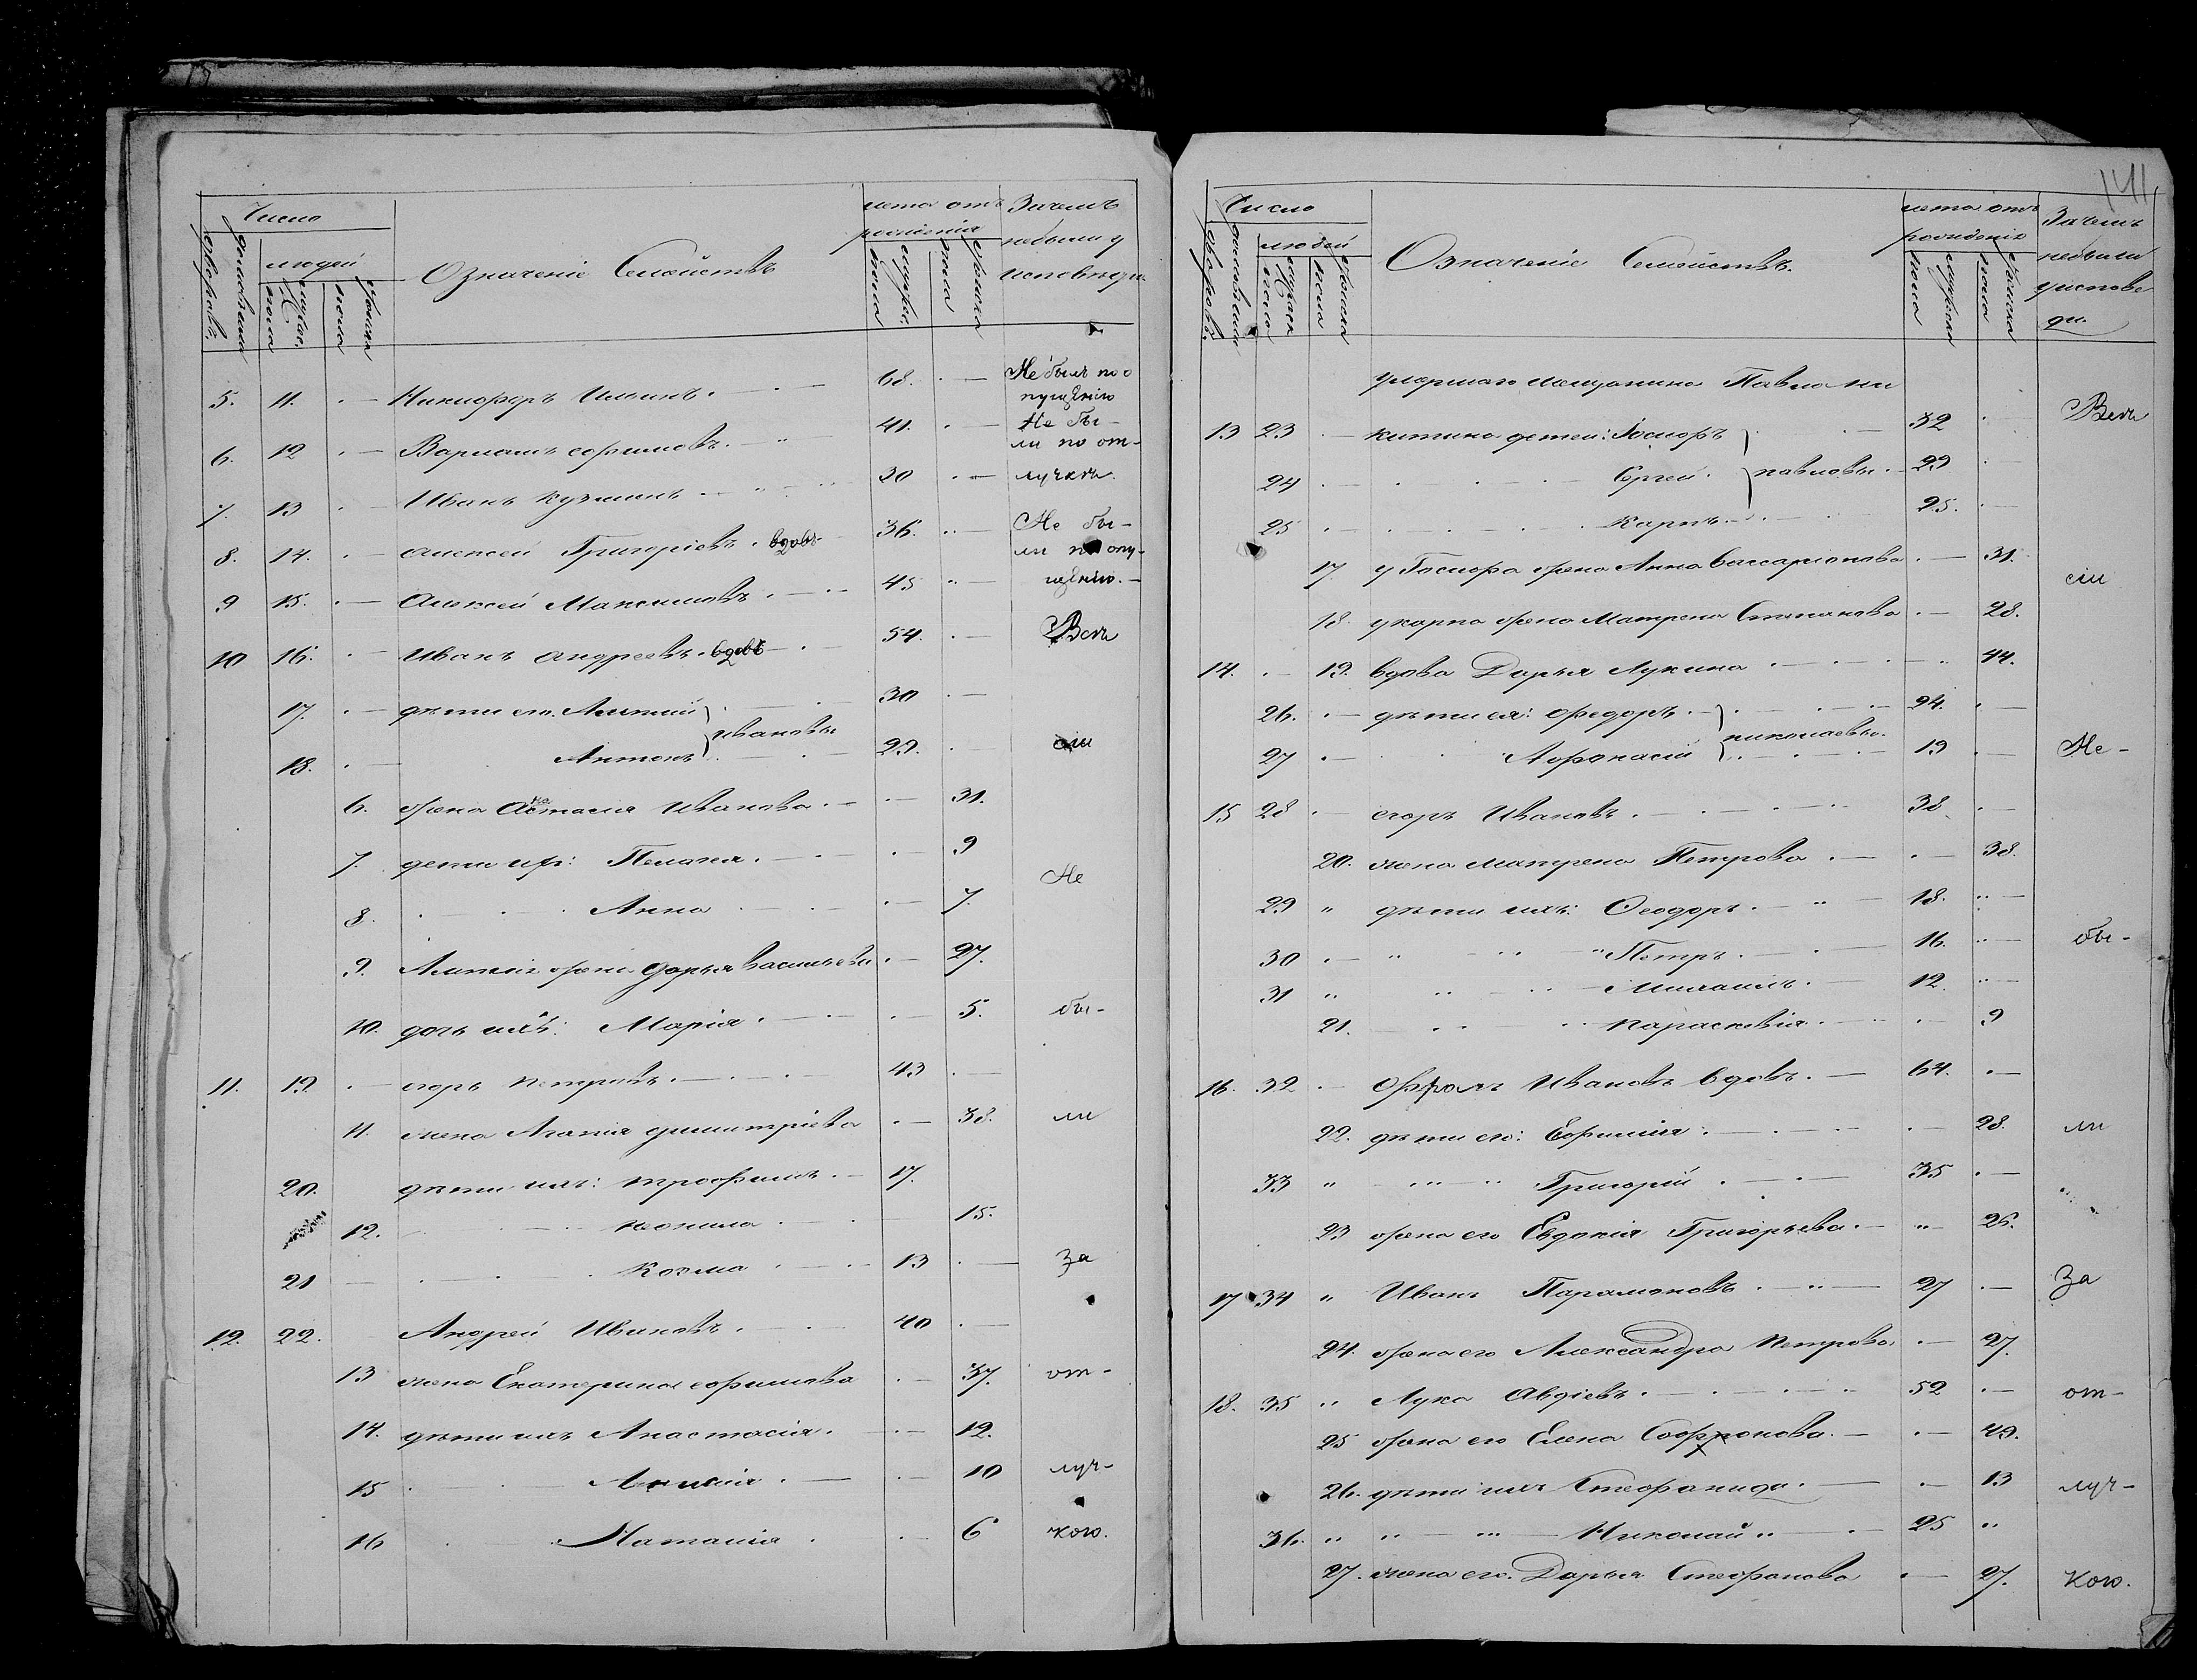 Число
домовъ
дворовъ.
людей
мужес. пола
женска пола
Означеніе Семействъ
лета отъ рожденія
мужес. пола
женска пола
Зачемъ небыли у исповѣди.
5. 11. Никифоръ Ильинъ. 68. Не былъ по о
пущенію
6. 12 Варламъ ефимовъ. 41. Не бы-
ли по от-
7. 13 Иванъ кузминъ 30 лучкѣ.
8. 14. алексей Григоріевъ. вдовъ 36. Не бы-
ли по опу-
9 15. Алексей Максимовъ. 45 щенію.
10 16. Иванъ андреевъ. вдовъ 54. Всѣ
17. дѣти его. Алипій 30
ивановы
18. Антонъ 29. сіи
6. жена Анастасія Иванова. 31.
7. дети их: Пелагея. 9
Не
8. Анна 7.
9. Алипія жена дарья васильева 27.
10. дочь ихъ: Марія 5. бы-
11. 19. егоръ петровъ. 43
11. жена Агафія димитріева 38. ли
20. дѣти ихъ: трофимъ. 17.
12. неонила 15.
21 Козма 13 За
12. 22. Андрей Ивановъ. 40
13 жена Екатерина ефимова 37. от-
14. дѣти ихъ Анастасія. 12.
15 10 луч-
16 Наталія 6 кою.
141
Число
домовъ
дворовъ.
людей
мужеск пола
женска пола
Означеніе Семействъ.
лета отъ рожденія
мужеска пола
женска пола
Зачемъ небыли уисповеди.
умершаго мещанина Павла ни
13 23 китина детей: 32 Всѣ
24 Ергей. павловы. 29
25 Карпъ. 25.
17. жена Анна Виссаріонова 31.
сіи
18. укарпа жена Матрена Степанова 28.
14. 19. вдова Дарья Лукина 44.
26. дѣти ея: Федоръ. 24.
николаевы.
27 Афонасій 19 Не-
15 28 егоръ Ивановъ. 38
20. жена матрена Петрова 38.
29 дѣти ихъ: Феодоръ. 18.
30 Петръ. 16. бы-
31 Михаилъ. 12
21. параскевія 9
16. 32 Ивановъ вдовъ. 64.
22. дѣти его: Ефимія 28. ли
33 Григорій 35
23 жена его Евдокія Григорьева. 26.
17 34 Иванъ Парамоновъ 27 За
24. жена его Александра Петрова 27.
18. 35 Лука Авдіевъ. 52 от-
25 жена его Елена Софронова. 49.
26. дѣти ихъ Стефанида. 13 луч-
36. Николай 25
27. жена его. Дарья Стефанова 27. кою.